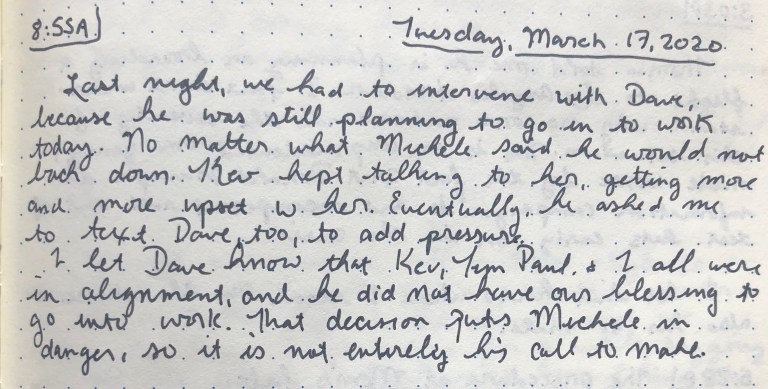 8:55A
Tuesday, March 17, 2020
Last night, we had to intervene with Dave,
because he was still planning to go in to work
today. No matter what Michele said he would not
back down. Kev kept talking to her, getting more
and more upset w her. Eventually, he asked me
to text Dave, too, to add pressure.
I let Dave know that Kev, Paul, & I all were
in alignment, and he did not have our blessing to
go into work. That decision puts Michele in
danger, so it is not entirely his call to make.